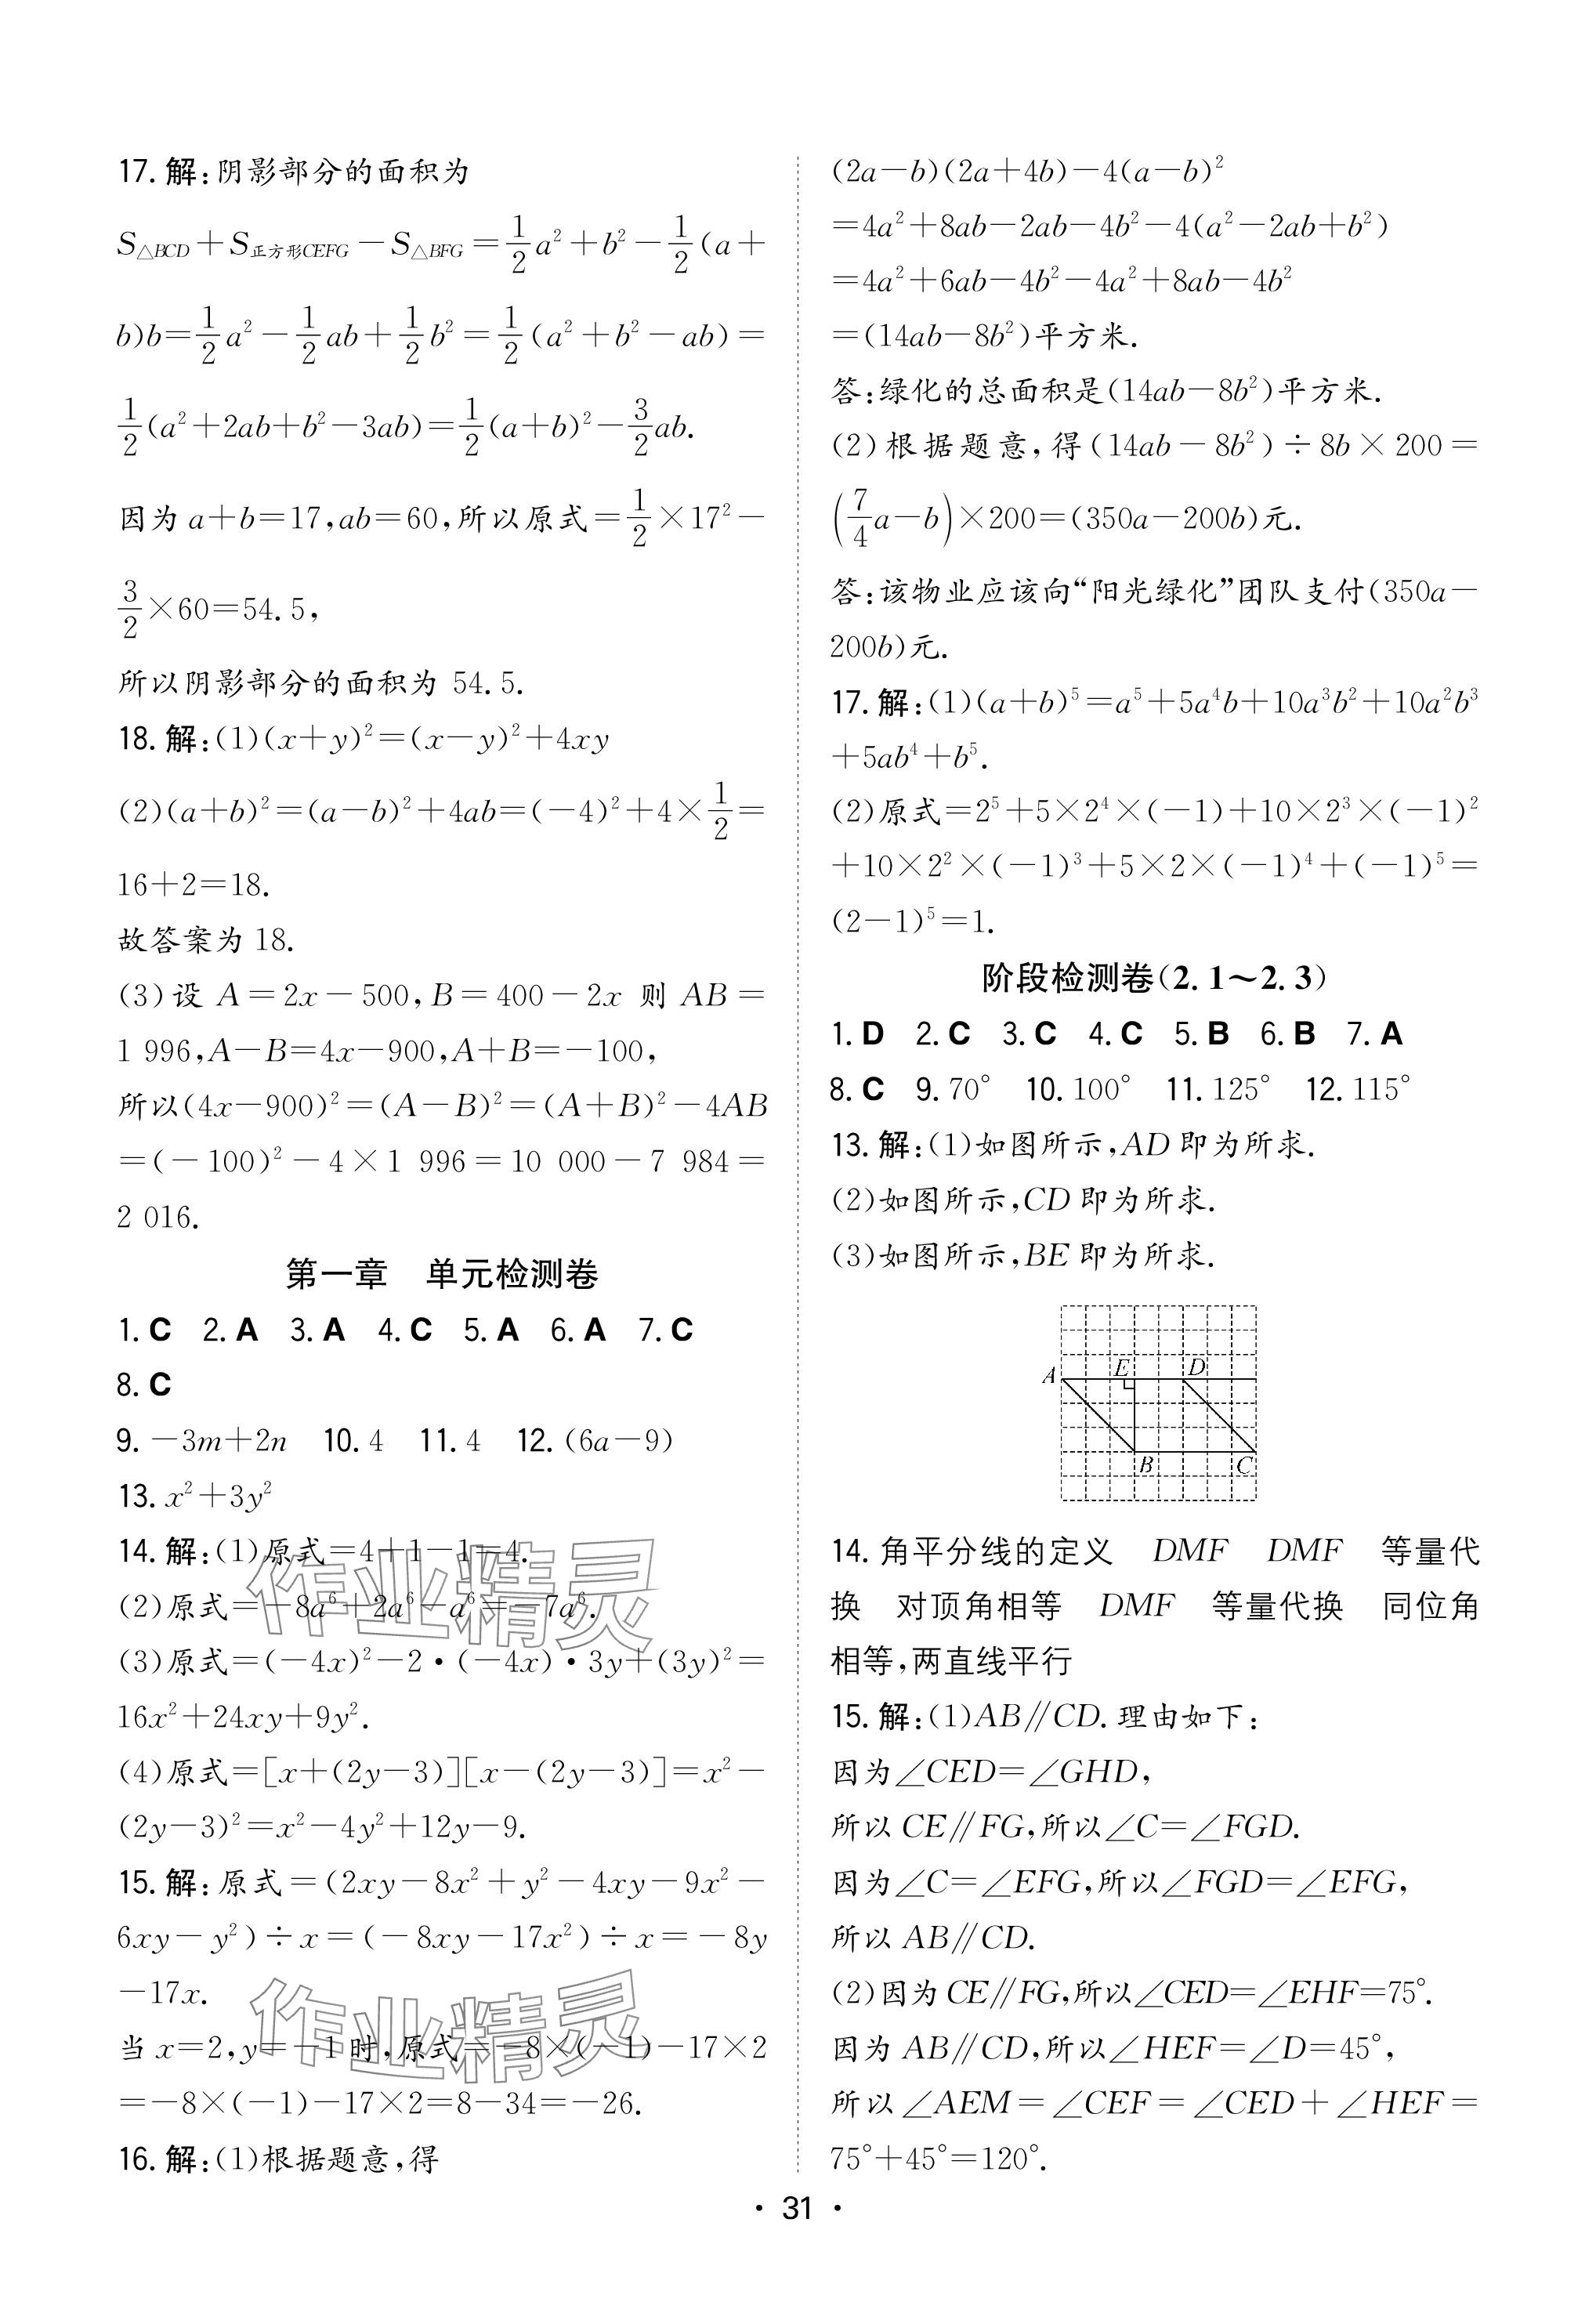 17. 解:阴影部分的面积为
S△BCD+S正方形CEFG-S△BFG=1/2a²+b²-1/2(a+
b)b=1/2a²-1/2ab+1/2b²=1/2(a²+b²-ab)=
1/2(a²+2ab+b²-3ab)=1/2(a+b)²-3/2ab.
因为a+b=17,ab=60,所以原式=1/2×17²-
3/2×60=54.5,
所以阴影部分的面积为 54.5.
18. 解:(1)(x+y)²=(x-y)²+4xy
(2)(a+b)²=(a-b)²+4ab=(-4)²+4×1/2=
16+2=18.
故答案为 18.
(3)设 A=2x-500,B=400-2x 则 AB=
1 996,A-B=4x-900,A+B=-100,
所以(4x-900)²=(A-B)²=(A+B)²-4AB
=(-100)²-4×1 996=10 000-7 984=
2 016.
第一章 单元检测卷
1. C 2. A 3. A 4. C 5. A 6. A 7. C
8. C
9. -3m+2n 10. 4 11. 4 12. (6a-9)
13. x²+3y²
14. 解:(1)原式=4+1-1=4.
(2)原式=-8a⁶+2a⁶-a⁶=-7a⁶.
(3)原式=(-4x)²-2·(-4x)·3y+(3y)²=
16x²+24xy+9y².
(4)原式=[x+(2y-3)][x-(2y-3)]=x²-
(2y-3)²=x²-4y²+12y-9.
15. 解:原式=(2xy-8x²+y²-4xy-9x²-
6xy-y²)÷x=(-8xy-17x²)÷x=-8y
-17x.
当x=2,y=-1时,原式=-8×(-1)-17×2
=-8×(-1)-17×2=8-34=-26.
16. 解:(1)根据题意,得
(2a-b)(2a+4b)-4(a-b)²
=4a²+8ab-2ab-4b²-4(a²-2ab+b²)
=4a²+6ab-4b²-4a²+8ab-4b²
=(14ab-8b²)平方米.
答:绿化的总面积是(14ab-8b²)平方米.
(2)根据题意,得(14ab-8b²)÷8b×200=
(7/4a-b)×200=(350a-200b)元.
答:该物业应该向“阳光绿化”团队支付(350a-
200b)元.
17. 解:(1)(a+b)⁵=a⁵+5a⁴b+10a³b²+10a²b³
+5ab⁴+b⁵.
(2)原式=2⁵+5×2⁴×(-1)+10×2³×(-1)²
+10×2²×(-1)³+5×2×(-1)⁴+(-1)⁵=
(2-1)⁵=1.
阶段检测卷(2.1~2.3)
1. D 2. C 3. C 4. C 5. B 6. B 7. A
8. C 9. 70° 10. 100° 11. 125° 12. 115°
13. 解:(1)如图所示,AD即为所求.
(2)如图所示,CD即为所求.
(3)如图所示,BE即为所求.
A E D
B C
14. 角平分线的定义 DMF DMF 等量代
换 对顶角相等 DMF 等量代换 同位角
相等,两直线平行
15. 解:(1)AB∥CD.理由如下:
因为∠CED=∠GHD,
所以CE∥FG,所以∠C=∠FGD.
因为∠C=∠EFG,所以∠FGD=∠EFG,
所以AB∥CD.
(2)因为CE∥FG,所以∠CED=∠EHF=75°.
因为AB∥CD,所以∠HEF=∠D=45°,
所以∠AEM=∠CEF=∠CED+∠HEF=
75°+45°=120°.
· 31 ·
作业精灵
作业精灵